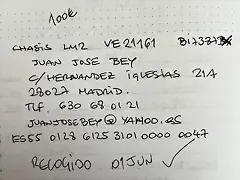 100€
CHASIS LM2 VE21161 B17373
JUAN JOSE BEY
C/HERNANDEZ IGLESIAS 21A
28027 MADRID.
TLF. 630 68 01 21
JUANJOSEBEY@YAHOO.ES
ES55 0128 6125 3101 0000 0047
RECOGIDO 01JUN ✓